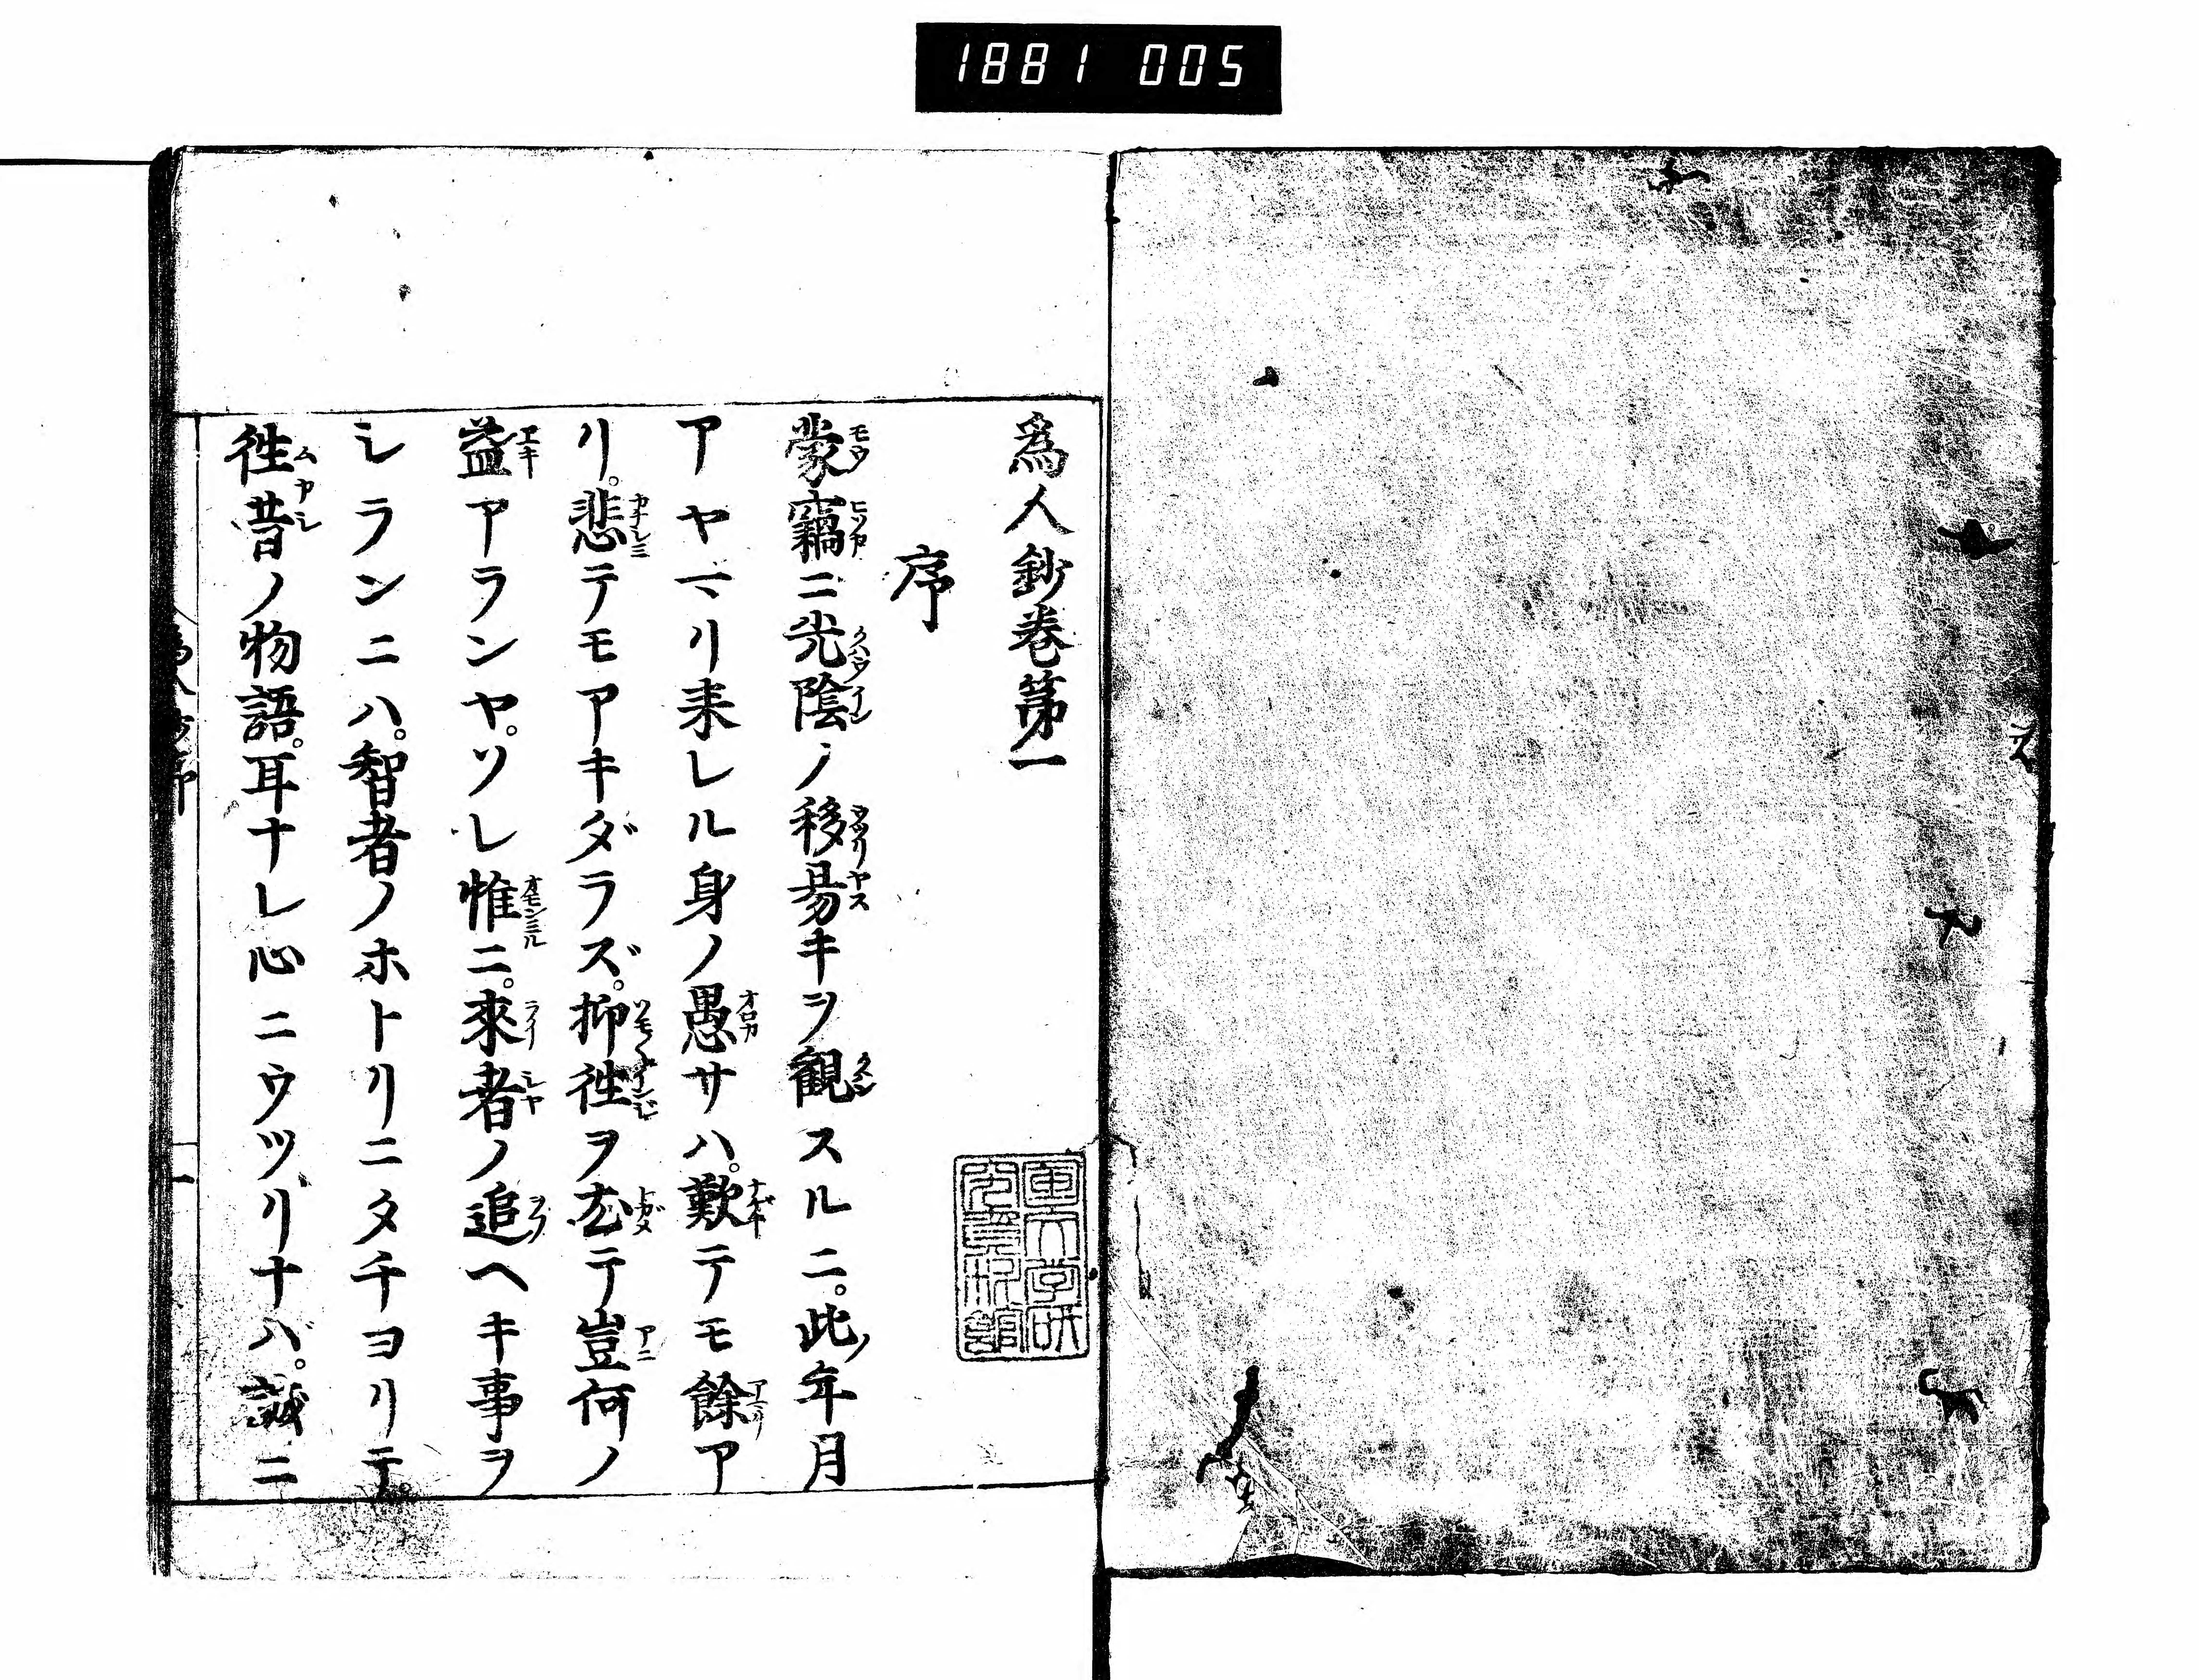 1881 005
為人鈔卷第一
序
蒙竊ニ光陰ノ移昜キヲ観スルニ。此年月
アヤマリ来レル身ノ愚サハ。歎テモ餘ア
リ。悲テモアキダラズ。抑徃ヲ尤テ豈何ノ
益アランヤ。ソレ惟ニ。來者ノ追ヘキ事ヲ
シランニハ。智者ノホトリニタチヨリテ。
徃昔ノ物語。耳ナレ心ニウツリナバ。誠ニ